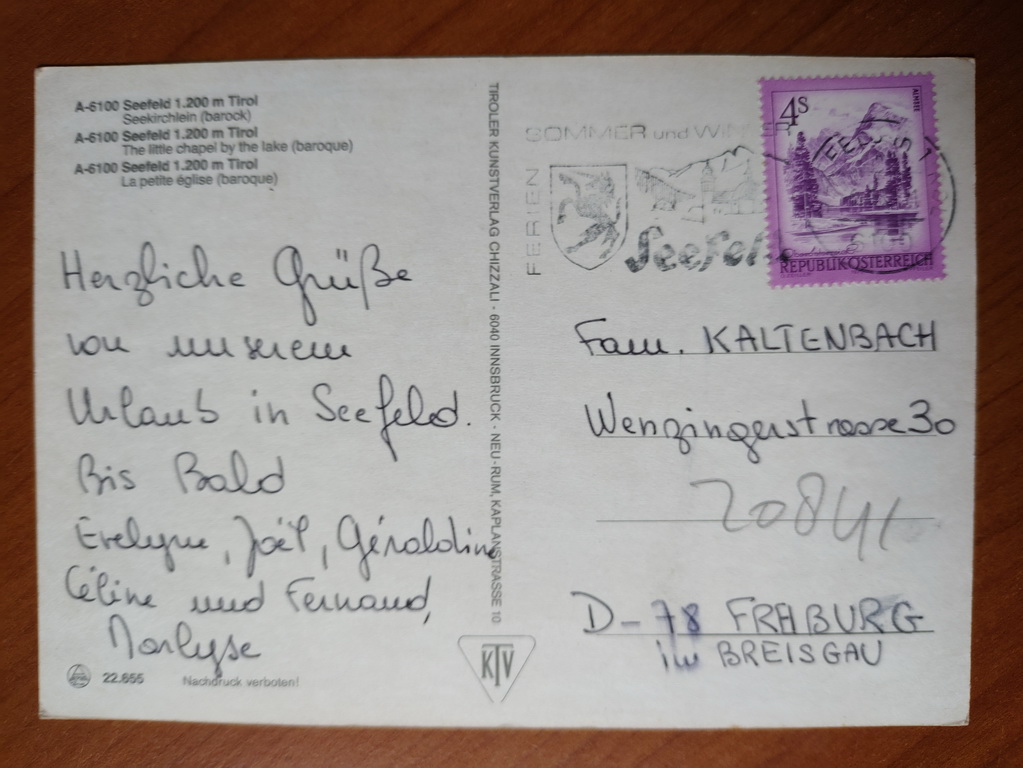 A-6100 Seefeld 1.200 m Tirol
Seekirchlein (barock)
A-6100 Seefeld 1.200 m Tirol
The little chapel by the lake (baroque)
A-6100 Seefeld 1.200 m Tirol
La petite église (baroque)
Herzliche Grüße
von unserem
Urlaub in Seefeld.
Bis Bald
Evelyne, Joël, Géraldine
Céline und Fernand,
Marlyse
22.655 Nachdruck verboten!
TIROLER KUNSTVERLAG CHIZZALI - 6040 INNSBRUCK - NEU-RUM, KAPLANSTRASSE 10
KTV
FERIEN
SOMMER und WINTER
Seefeld
4S
ALMSEE
REPUBLIK ÖSTERREICH
Fam. KALTENBACH
Wenzingerstrasse 30
D-78 FRAIBURG
im BREISGAU